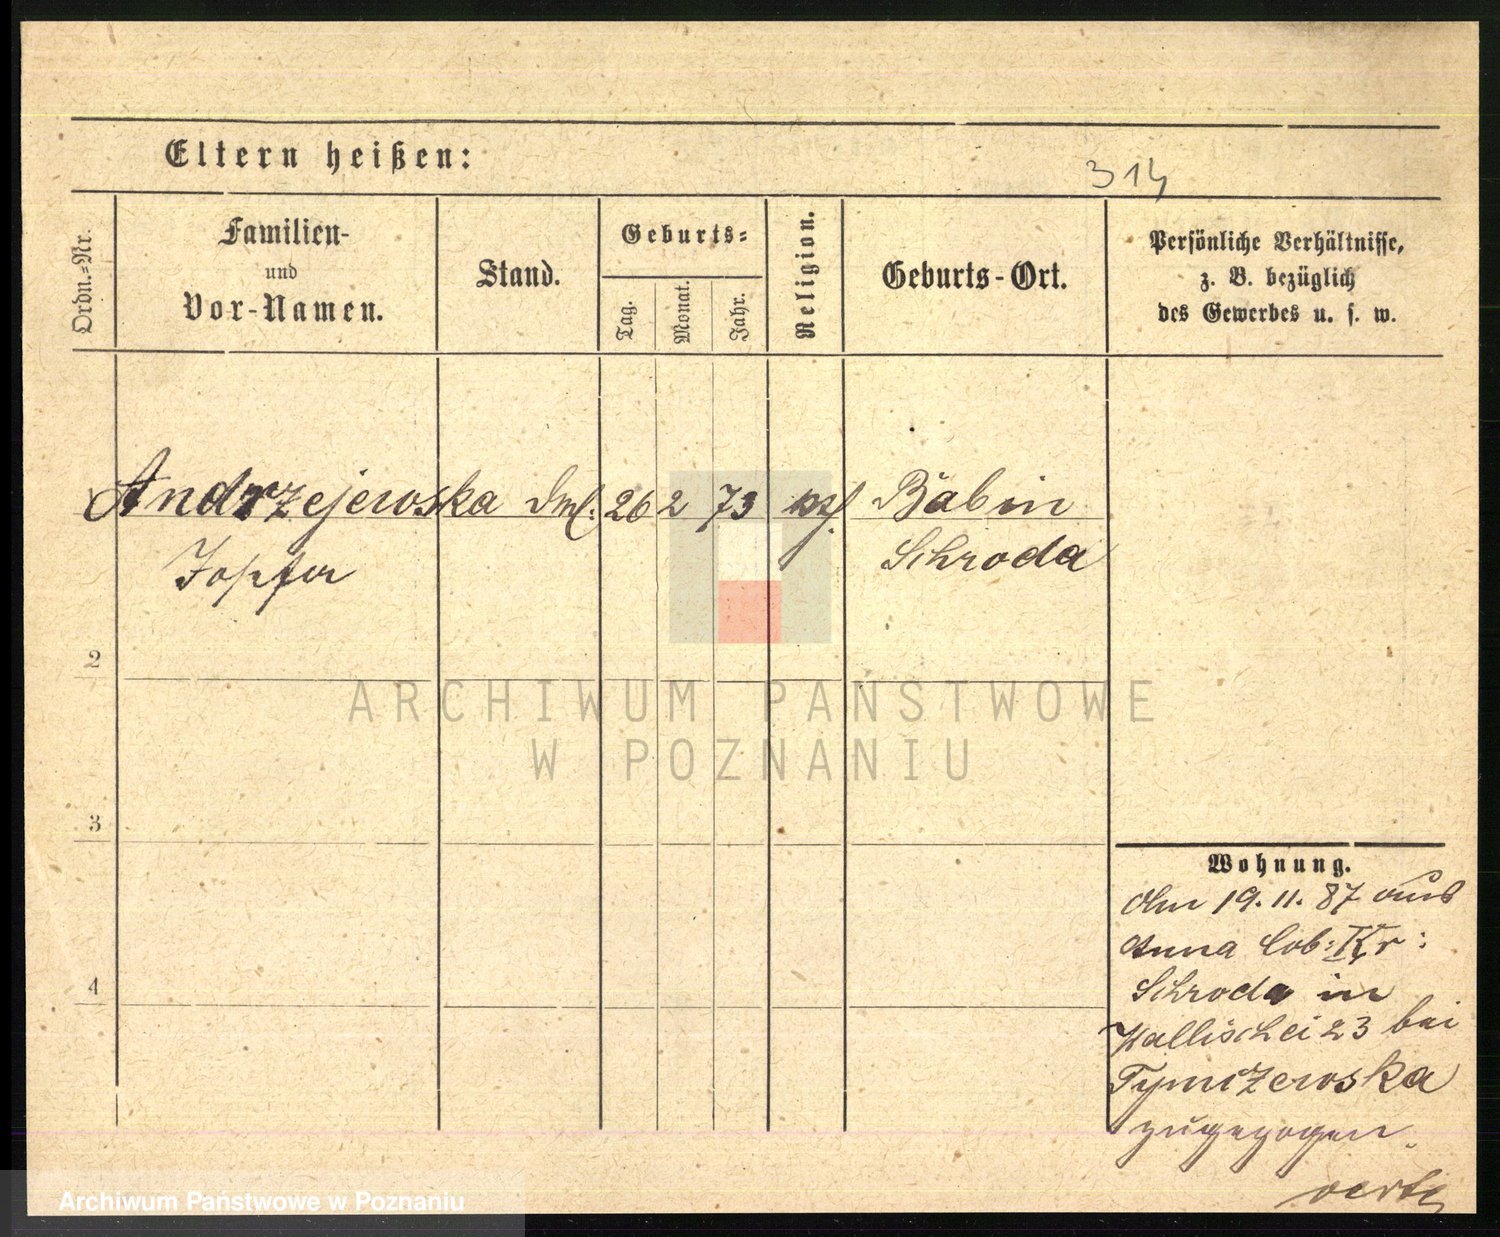 Eltern heißen:
314
Ordn.=Nr.
Familien-
und
Vor-Namen.
Stand.
Geburts=
Tag.
Monat.
Jahr.
Religion.
Geburts-Ort.
Persönliche Verhältnisse,
z. B. bezüglich
des Gewerbes u. s. w.
Andrzejewska 26 2 73 Babin
Schroda
2
3
4
Wohnung.
Am 19. 11. 87 aus
Anna Kr:
Schroda in
Wallischei 23 bei
Tymczewska
zugezogen.
ARCHIWUM PAŃSTWOWE
W POZNANIU
Archiwum Państwowe w Poznaniu